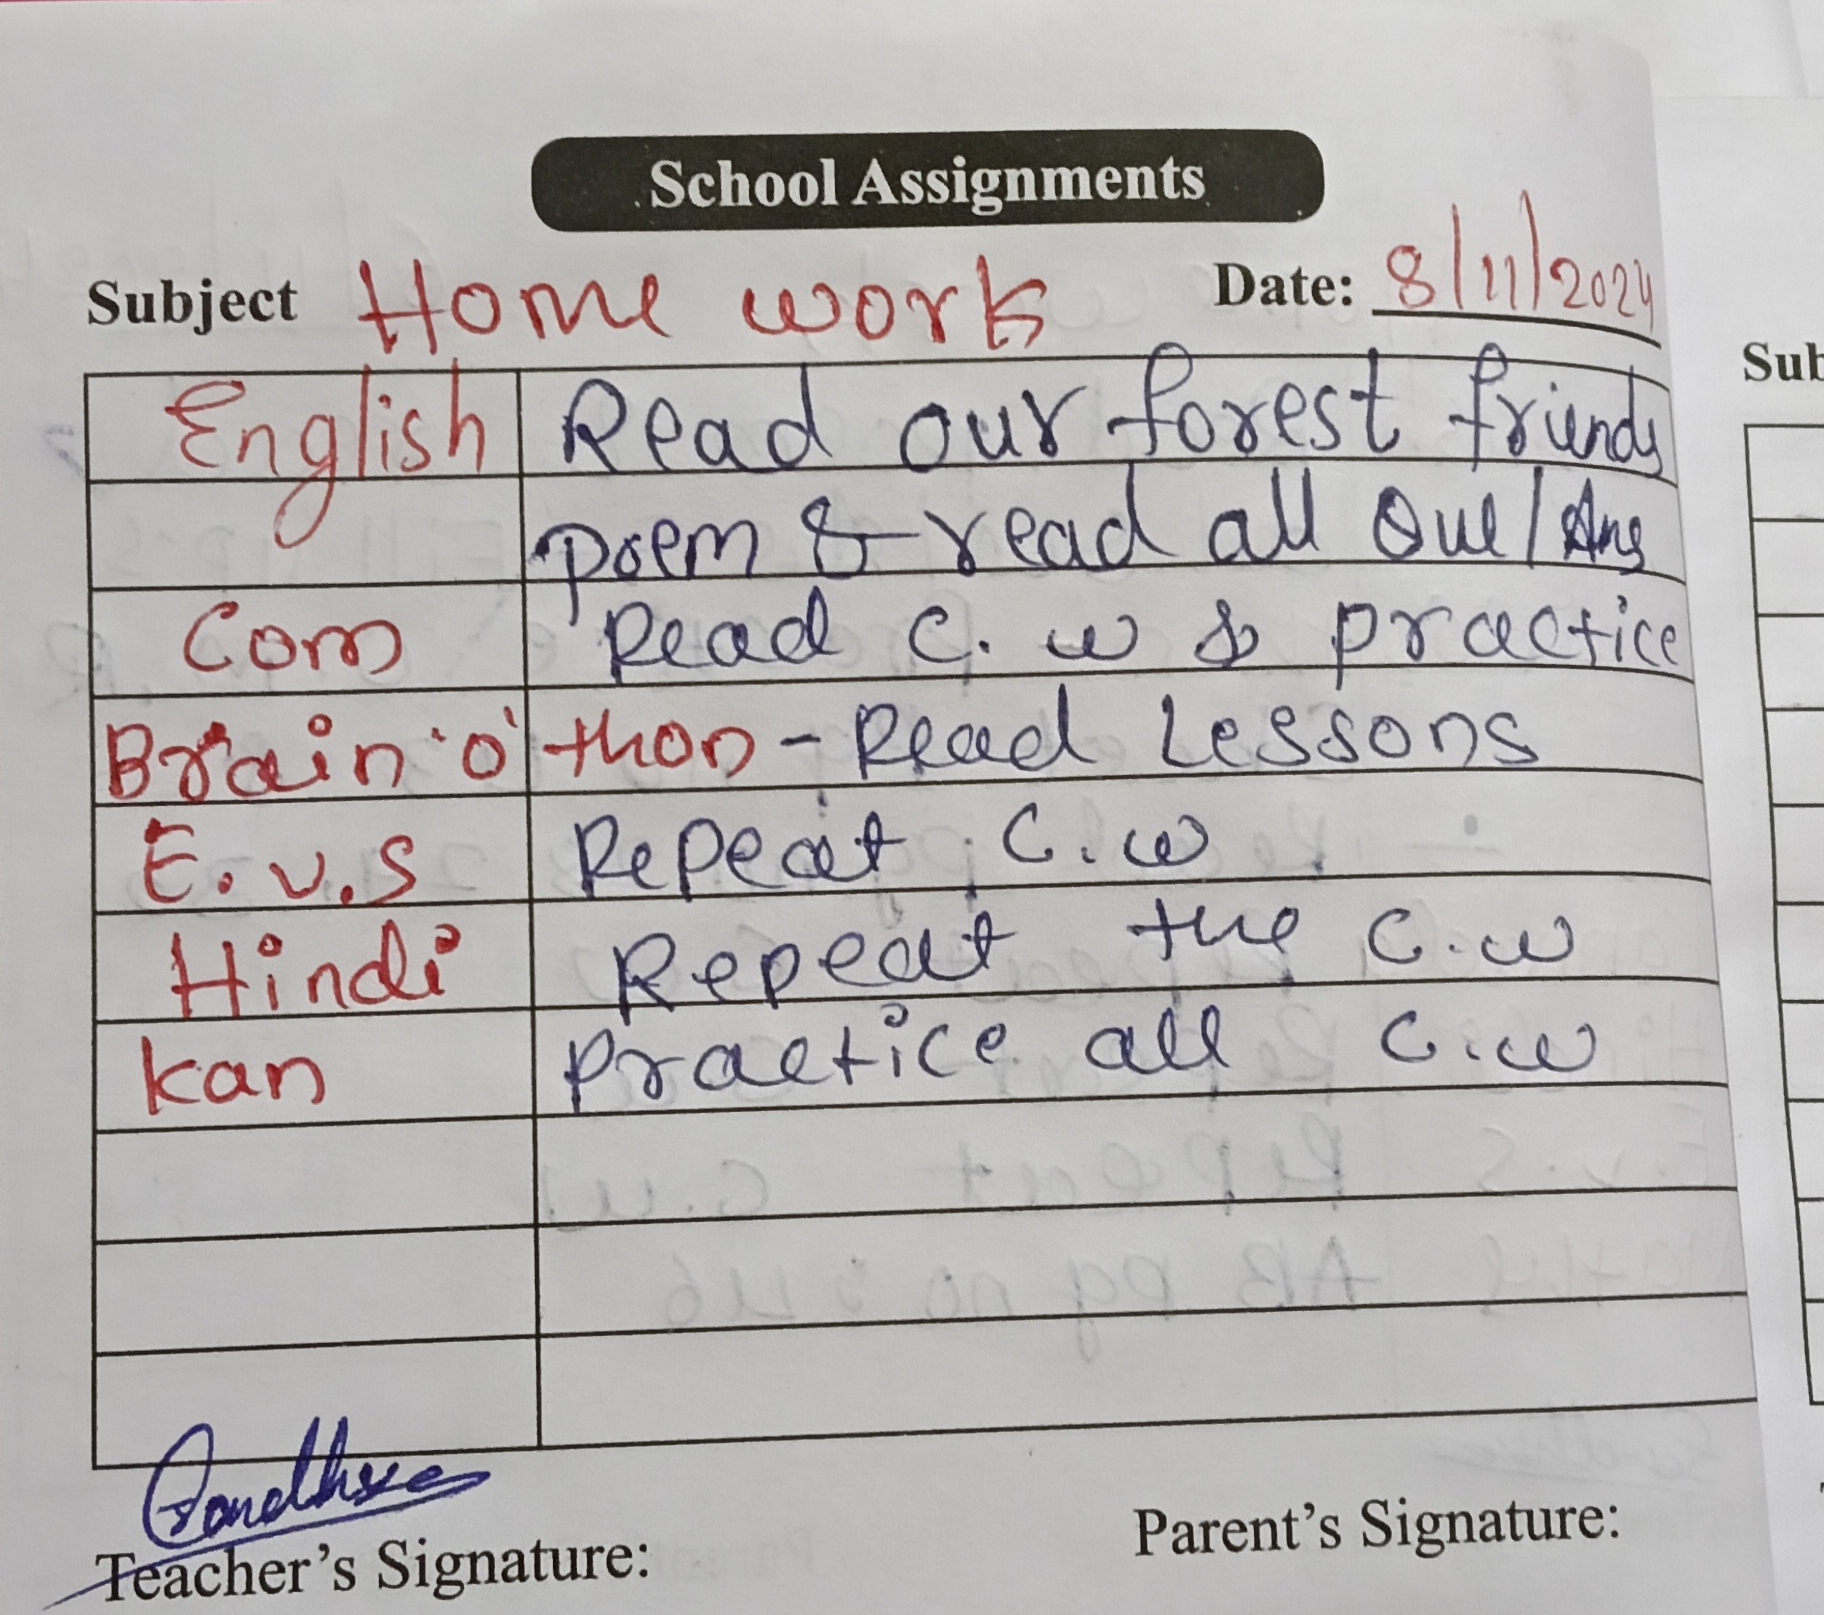 School Assignments
Subject Home work Date: 8/11/2024
English Read our forest friends
poem & read all Que/Ans
Com Read C.w & practice
Brain 'o' thon - Read Lessons
E.v.s Repeat C.w
Hindi Repeat the C.w
kan Practice all C.w
Teacher's Signature: Parent's Signature:
Sub